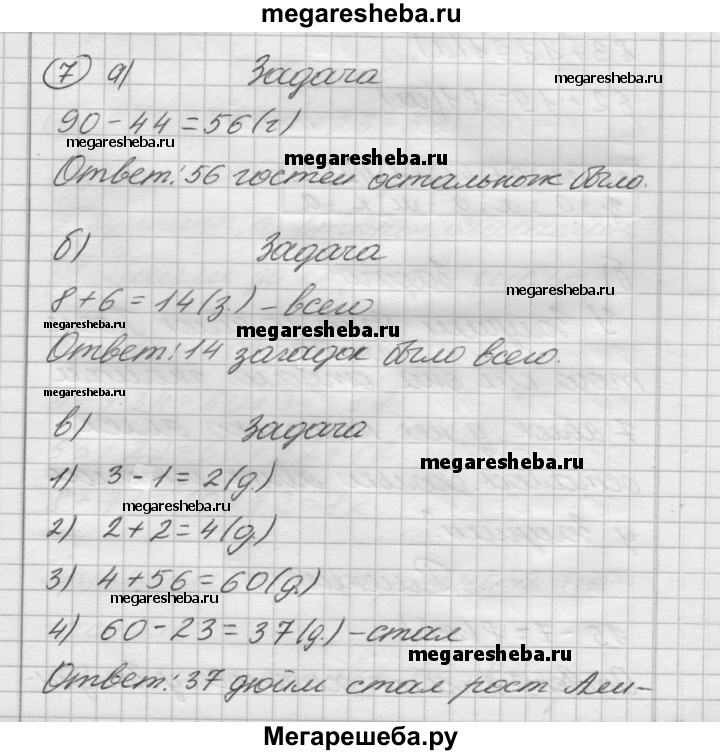 megaresheba.ru
7 а) Задача
megaresheba.ru
90 - 44 = 56 (г)
megaresheba.ru
megaresheba.ru
Ответ: 56 гостей остальных было.
б) Задача
8 + 6 = 14 (з.) - всего
megaresheba.ru
megaresheba.ru
megaresheba.ru
Ответ: 14 загадок было всего.
megaresheba.ru
в) Задача
megaresheba.ru
1) 3 - 1 = 2 (д)
megaresheba.ru
2) 2 + 2 = 4 (д)
3) 4 + 56 = 60 (д.)
megaresheba.ru
4) 60 - 23 = 37 (д.) - стал
megaresheba.ru
Ответ: 37 дюйм стал рост Али-
Мегарешеба.ру